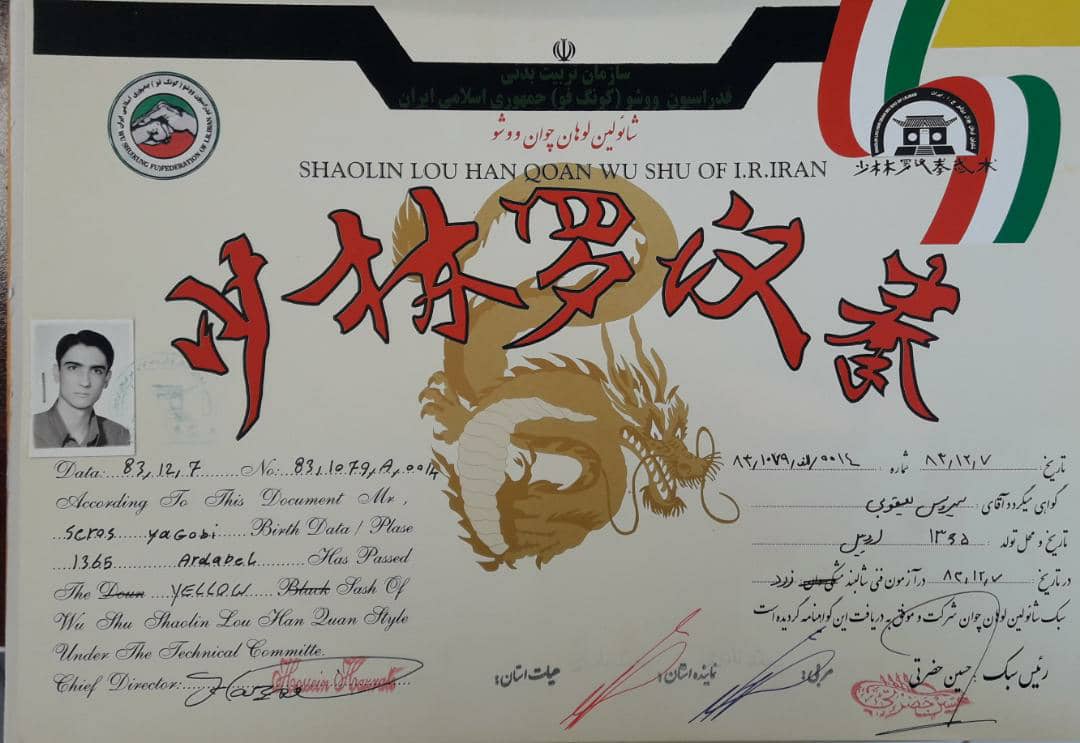 سازمان تربیت بدنی
فدراسیون ووشو (کونگ فو) جمهوری اسلامی ایران
شائولین لوهان چوان ووشو
SHAOLIN LOU HAN QOAN WU SHU OF I.R.IRAN
少林罗汉拳武术
少林罗汉拳
Data: 83,12,7 No: 83,1079,A,0014
According To This Document Mr,
Seros yagobi Birth Data / Plase
1365 Ardabel Has Passed
The Doun YELLOW Black Sash Of
Wu Shu Shaolin Lou Han Quan Style
Under The Technical Committe.
Chief Director: Hossein Hazrati
تاریخ: ۸۳,۱۲,۷ شماره: ۸۳,۱۰۷۹,الف,۰۰۱۴
گواهی میگردد آقای: سیروس یعقوبی
تاریخ و محل تولد ۱۳۶۵ اردبیل
در تاریخ: ۸۳,۱۲,۷ در آزمون فنی شالبند مشکی زرد
سبک شائولین لوهان چوان شرکت و موفق به دریافت این گواهینامه گردیده است
رئیس سبک: حسین حضرتی
مربی:
نماینده استان:
هیئت استان:
حسین حضرتی